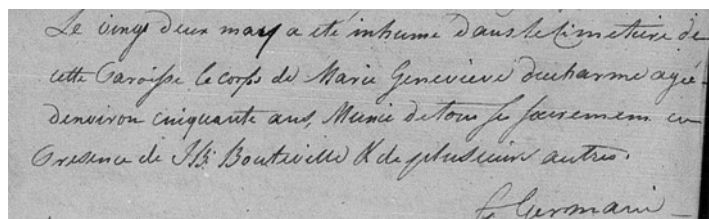 Le vingt deux may a été inhumé dans le Cimetiere de
cette Paroisse le corps de Marie Genevieve ducharme agée
denviron cinquante ans, Munie de tous ses sacremens en
Presence de J B. Bouteville & de plusieurs autres.
Germain